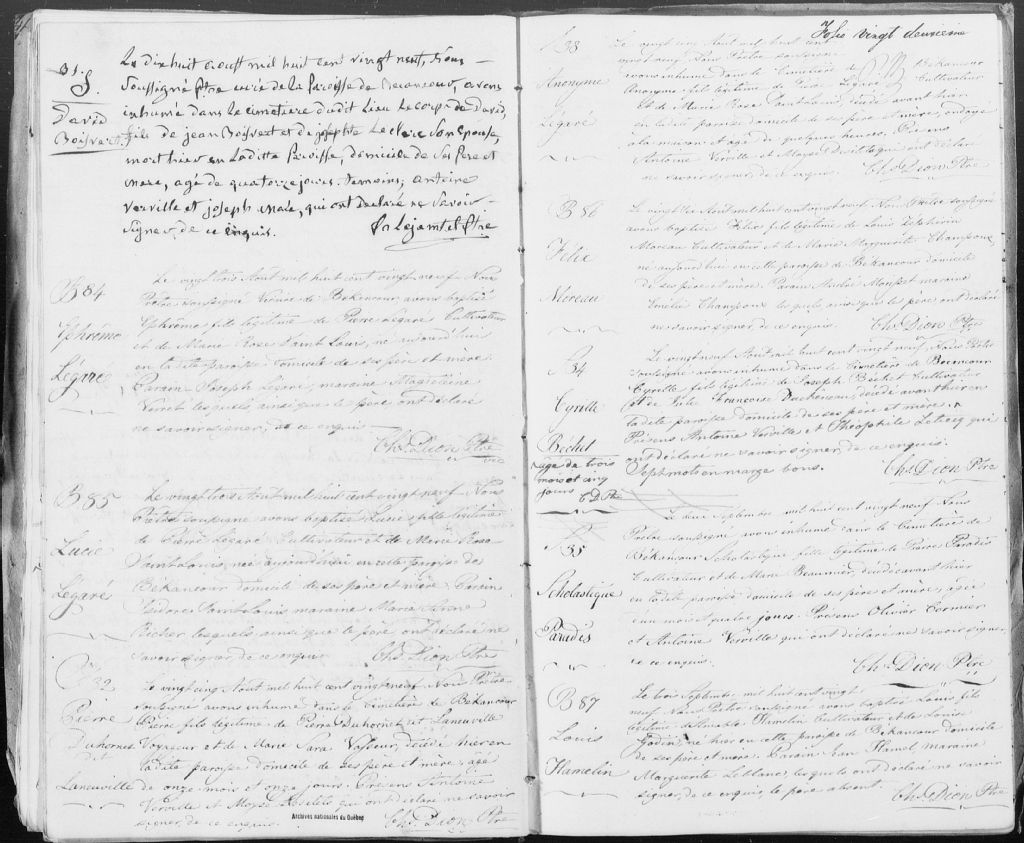 31. S.
David
Boisvert
Le dix huit aoust mil huit cent vingt neuf, Nous
Soussigné Ptre curé de la Paroisse de Becancour, avons
inhumé dans le cimetiere dudit Lieu Le corps de David,
fils de jean Boisvert et de josephte Leclerc Son Epouse,
mort hier en Laditte Paroisse, domicile de Ses Pere et
Mere, agé de quatorze jours. Temoins; antoine
Verville et joseph Mare, qui ont Declaré ne Savoir
Signer, de ce enquis. Lejamtel Ptre
B 84
Ephrême
Légaré
Le vingt trois Aout mil huit cent vingt neuf Nous
Prêtre soussigné Vicaire de Békancour avons baptisé
Ephrême fils légitime de Pierre Légaré Cultivateur
et de Marie Rose Saint Louis, né aujourd'hui
en ladite paroisse domicile de ses père et mère.
Parain Joseph Légaré, maraine Magdeleine
Verret lesquels ainsi que le père ont déclaré
ne savoir signer, de ce enquis
Chs. Dion Ptre
vic
B 85
Lucie
Légaré
Le vingt trois Aout mil huit cent vingt neuf Nous
Prêtre soussigné avons baptisé Lucie fille légitime
de Pierre Légaré Cultivateur et de Marie Rose
Saint Louis, née aujourd'hui en cette paroisse de
Békancour domicile de ses père et mère. Parain
Isidore Saint Louis maraine Marie
Richer lesquels ainsi que le père ont déclaré ne
savoir signer de ce enquis Chs. Dion Ptre
S 32
Pierre
Duhornet
dit
Laneuville
Le vingt cinq Aout mil huit cent vingt neuf Nous Prêtre
soussigné avons inhumé dans le Cimetière de Békancour
Pierre fils légitime de Pierre Duhornet dit Laneuville
Voyageur et de Marie Vasseur, décédé hier en
ladite paroisse domicile de ses père et mère, agé
de onze mois et onze jours. Présens Antoine
Verville et Moyse qui ont déclaré ne savoir
signer, de ce enquis. Chs. Dion Ptre
Archives nationales du Québec
Folio vingt deuxième
S 33
Anonyme
Légaré
Le vingt cinq Aout mil huit cent
vingt neuf Nous Prêtre soussigné
avons inhumé dans le Cimetière de Békancour
Anonyme fils légitime de Pierre Légaré Cultivateur
et de Marie Rose Saint Louis, décédé avant hier
en ladite paroisse domicile de ses père et mère, ondoyé
à la maison et agé de quelques heures. Présens
Antoine Verville et Moyse qui ont déclaré
ne savoir signer, de ce enquis. Chs. Dion Ptre
B 86
Félix
Moreau
Le vingt Aout mil huit cent vingt neuf Nous Prêtre soussigné
avons baptisé Félix fils légitime de Louis
Moreau Cultivateur et de Marie Margueritte Champoux,
né aujourd'hui en cette paroisse de Békancour domicile
de ses père et mère. Parain maraine
Emélie Champoux lesquels ainsi que les père ont déclaré
ne savoir signer, de ce enquis. Chs. Dion Ptre
S 34
Cyrille
Béchet
agé de trois
mois et cinq
jours
C D Ptre
Le vingt neuf Aout mil huit cent vingt neuf, Nous Prêtre
soussigné avons inhumé dans le Cimetière de Becancour
Cyrille fils légitime de Joseph Béchet Cultivateur
et de Françoise décédé avant hier en
ladite paroisse domicile de ses père et mère.
Présens Antoine Verville et Théophile qui
ont déclaré ne savoir signer, de ce enquis.
Sept mots en marge bons. Chs. Dion Ptre
S
35
Scholastique
Paradis
Le deux Septembre mil huit cent vingt neuf Nous
Prêtre soussigné avons inhumé dans le Cimetière de
Békancour Scholastique fille légitime de Pierre Paradis
Cultivateur et de Marie Beaumier, décédée avant hier
en ladite paroisse domicile de ses père et mère, agée
d'un mois et quatre jours. Présens Olivier Cormier
et Antoine Verville qui ont déclaré ne savoir signer,
de ce enquis.
Chs. Dion Ptre
B 87
Louis
Hamelin
Le trois Septembre mil huit cent vingt
neuf Nous Prêtre soussigné avons baptisé Louis fils
légitime Hamelin Cultivateur et de Louise
Godin, né hier en cette paroisse de Békancour domicile
de ses père et mère. Parain Jean Hamel maraine
Marguerite Leblanc, lesquels ont déclaré ne savoir
signer, de ce enquis, le père absent. Chs. Dion Ptre